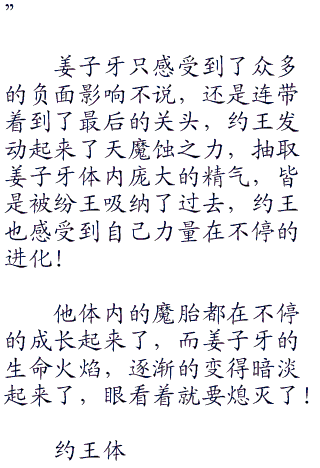 ”
姜子牙只感受到了众多
的负面影响不说，还是连带
着到了最后的关头，约王发
动起来了天魔蚀之力，抽取
姜子牙体内庞大的精气，皆
是被纷王吸纳了过去，约王
也感受到自己力量在不停的
进化！
他体内的魔胎都在不停
的成长起来了，而姜子牙的
生命火焰，逐渐的变得暗淡
起来了，眼看着就要熄灭了！
约王体